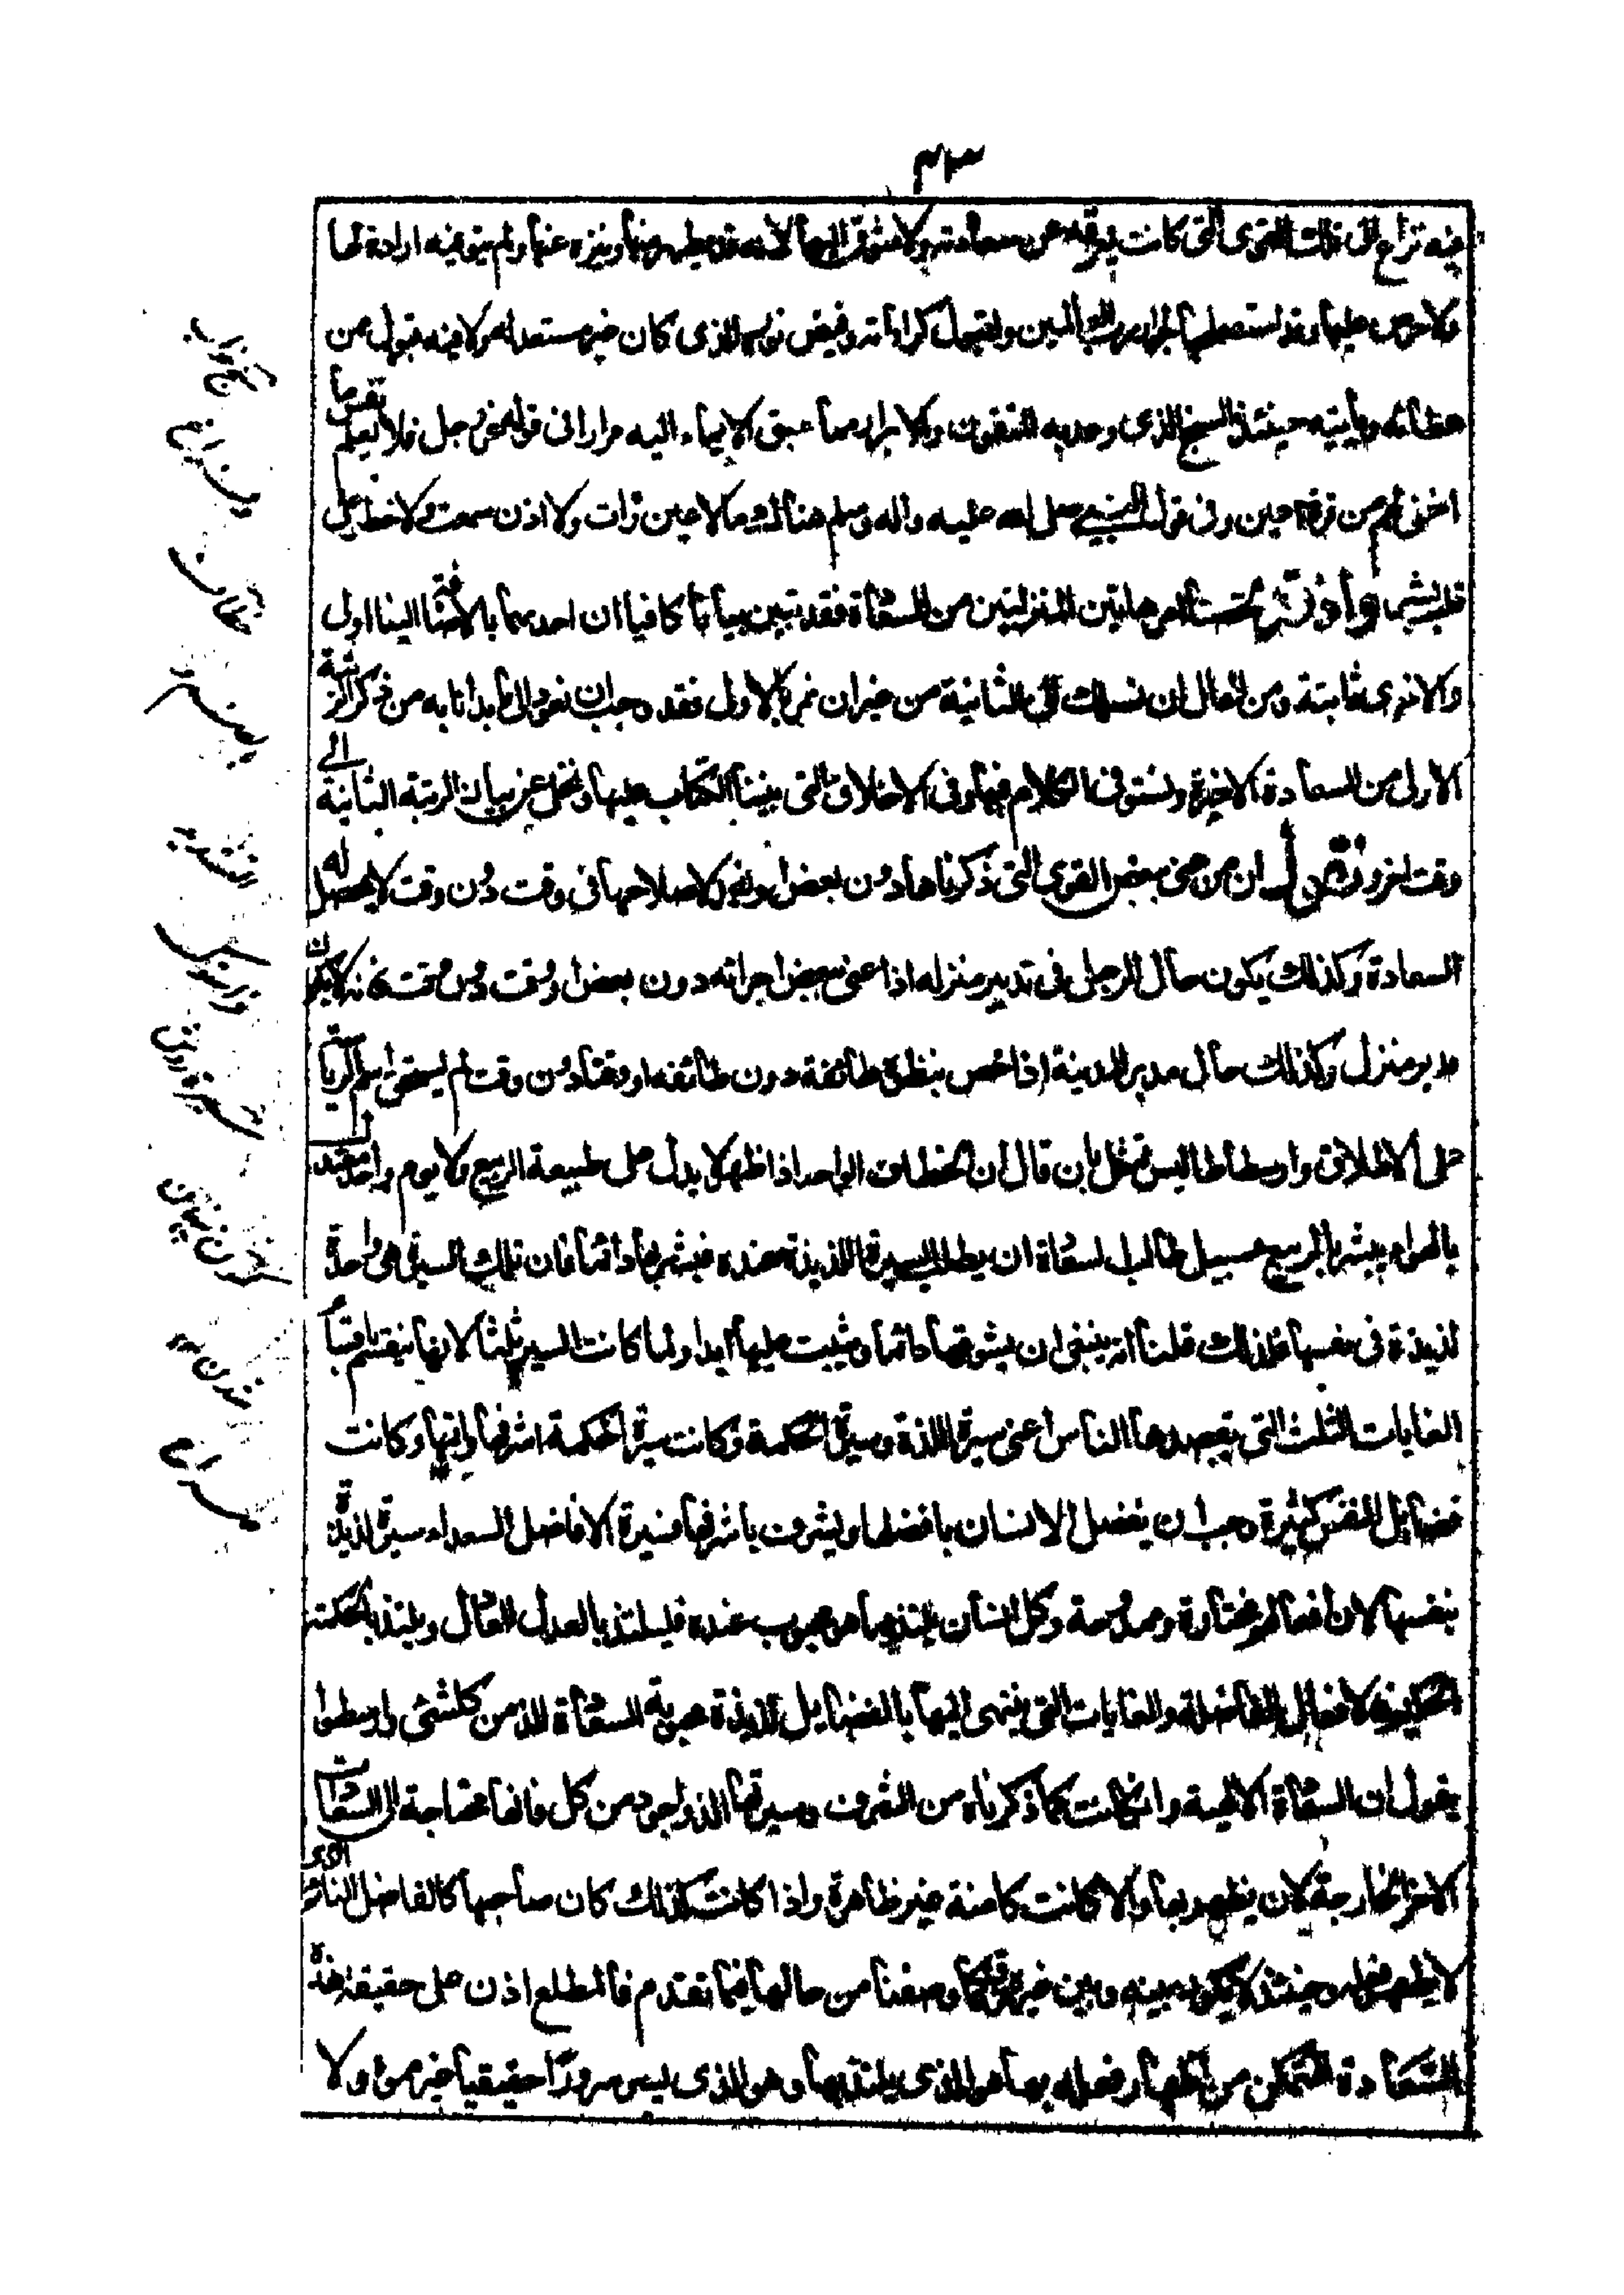 ٤٣
فيه نزاع الى ذلك القوى التى كانت تعوقه عن سعادته ولا متشوقا اليها لانه قد تطهر منها وتنزه عنها ولم يبق فيه ارادة لها
ولا حرص عليها وقد استصفاها لجوار رب العالمين ولقبول كراماته وفيض نوره الذى كان غير مستعد له ولا فيه قبول من
عطائه وياتيه حينئذ الذى وعد به المتقون والابرار مما سبق الايماء اليه مرارا فى قوله عز وجل فلا تعلم نفس ما
اخفى لهم من قرة اعين وفى قول النبى صلى الله عليه واله وسلم هناك ما لا عين رات ولا اذن سمعت ولا خطر على
قلب بشر واذ قد امر هاتين المنزلتين من السعادة فقد تبين بيانا كافيا ان احدهما بالاضافة الينا اولى
والاخرى ثانية ومن المحال ان نسلك الى الثانية من غير ان نمر بالاولى فقد وجب ان نعود الى ما بدانا به من ذكر الرتبة
الاولى من السعادة الاخيرة ونستوفى الكلام فيها وفى الاخلاق التى بنينا الكتاب عليها ونخلى عن بيان الرتبة الثانية الى
وقت اخر ونقول ان من عنى ببعض القوى التى ذكرناها دون بعض او تعمد لاصلاحها فى وقت دون وقت لا يحصل له
السعادة وكذلك يكون حال الرجل فى تدبير منزله اذا عنى ببعض اجزائه دون بعض او وقت دون وقت فانه لا يكون
مدبر منزل وكذلك حال مدبر المدينة اذا خص بنظره طائفة دون طائفة او وقتا دون وقت لم يستحق اسم الرياسة
على الاطلاق وارسطاطاليس تمثل بان قال ان الخطاف الواحد اذا ظهر لا يدل على طبيعة الربيع ولا يوم واحد معتدل
بالهواء يبشر بالربيع فسبيل طالب السعادة ان يطلب السيرة اللذيذة عنده فيسر بها دائما فان تلك السيرة هى واحدة
لذيذة فى نفسها فلذلك قلنا انه ينبغى ان يشوقها دائما ويثبت عليها ابدا ولما كانت السير ثلثا لانها ينقسم بانقسام
الغايات الثلث التى يقصدها الناس اعنى سيرة اللذة وسيرة الحكمة وكانت سيرة الحكمة اشرفها واتمها وكانت
فضايل النفس كثيرة وجب ان يفضل الانسان بافضلها ويشرف باشرفها فسيرة الافاضل السعداء سيرة لذيذة
بنفسها لان افعالهم مختارة وممدوحة وكل انسان يلتذ بما هو محبوب عنده فيلتذ بالعدل العادل ويلتذ بالحكمة
الحكيم فالافعال الفاضلة والغايات التى ينتهى اليها بالفضايل لذيذة محبوبة السعادة الذ من كل شئ وارسطو
يقول ان السعادة الالهية وان كانت كما ذكرناه من الشرف وسيرتها الذ واجود من كل فانها محتاجة الى السعادات
الاخر الخارجة لان يظهر بها والا كانت كامنة غير ظاهرة واذا كانت كذلك كان صاحبها كالفاضل النائم الذى
لا يظهر فعله وحينئذ لا يكون بينه وبين غيره فرق كما وصفنا من حالها فيما تقدم فالمطلع اذن على حقيقة هذه
السعادة المتمكن من اظهار فعله بها هو الذى يلتذ بها وهو الذى ليس سرورا حقيقيا غير مموه ولا